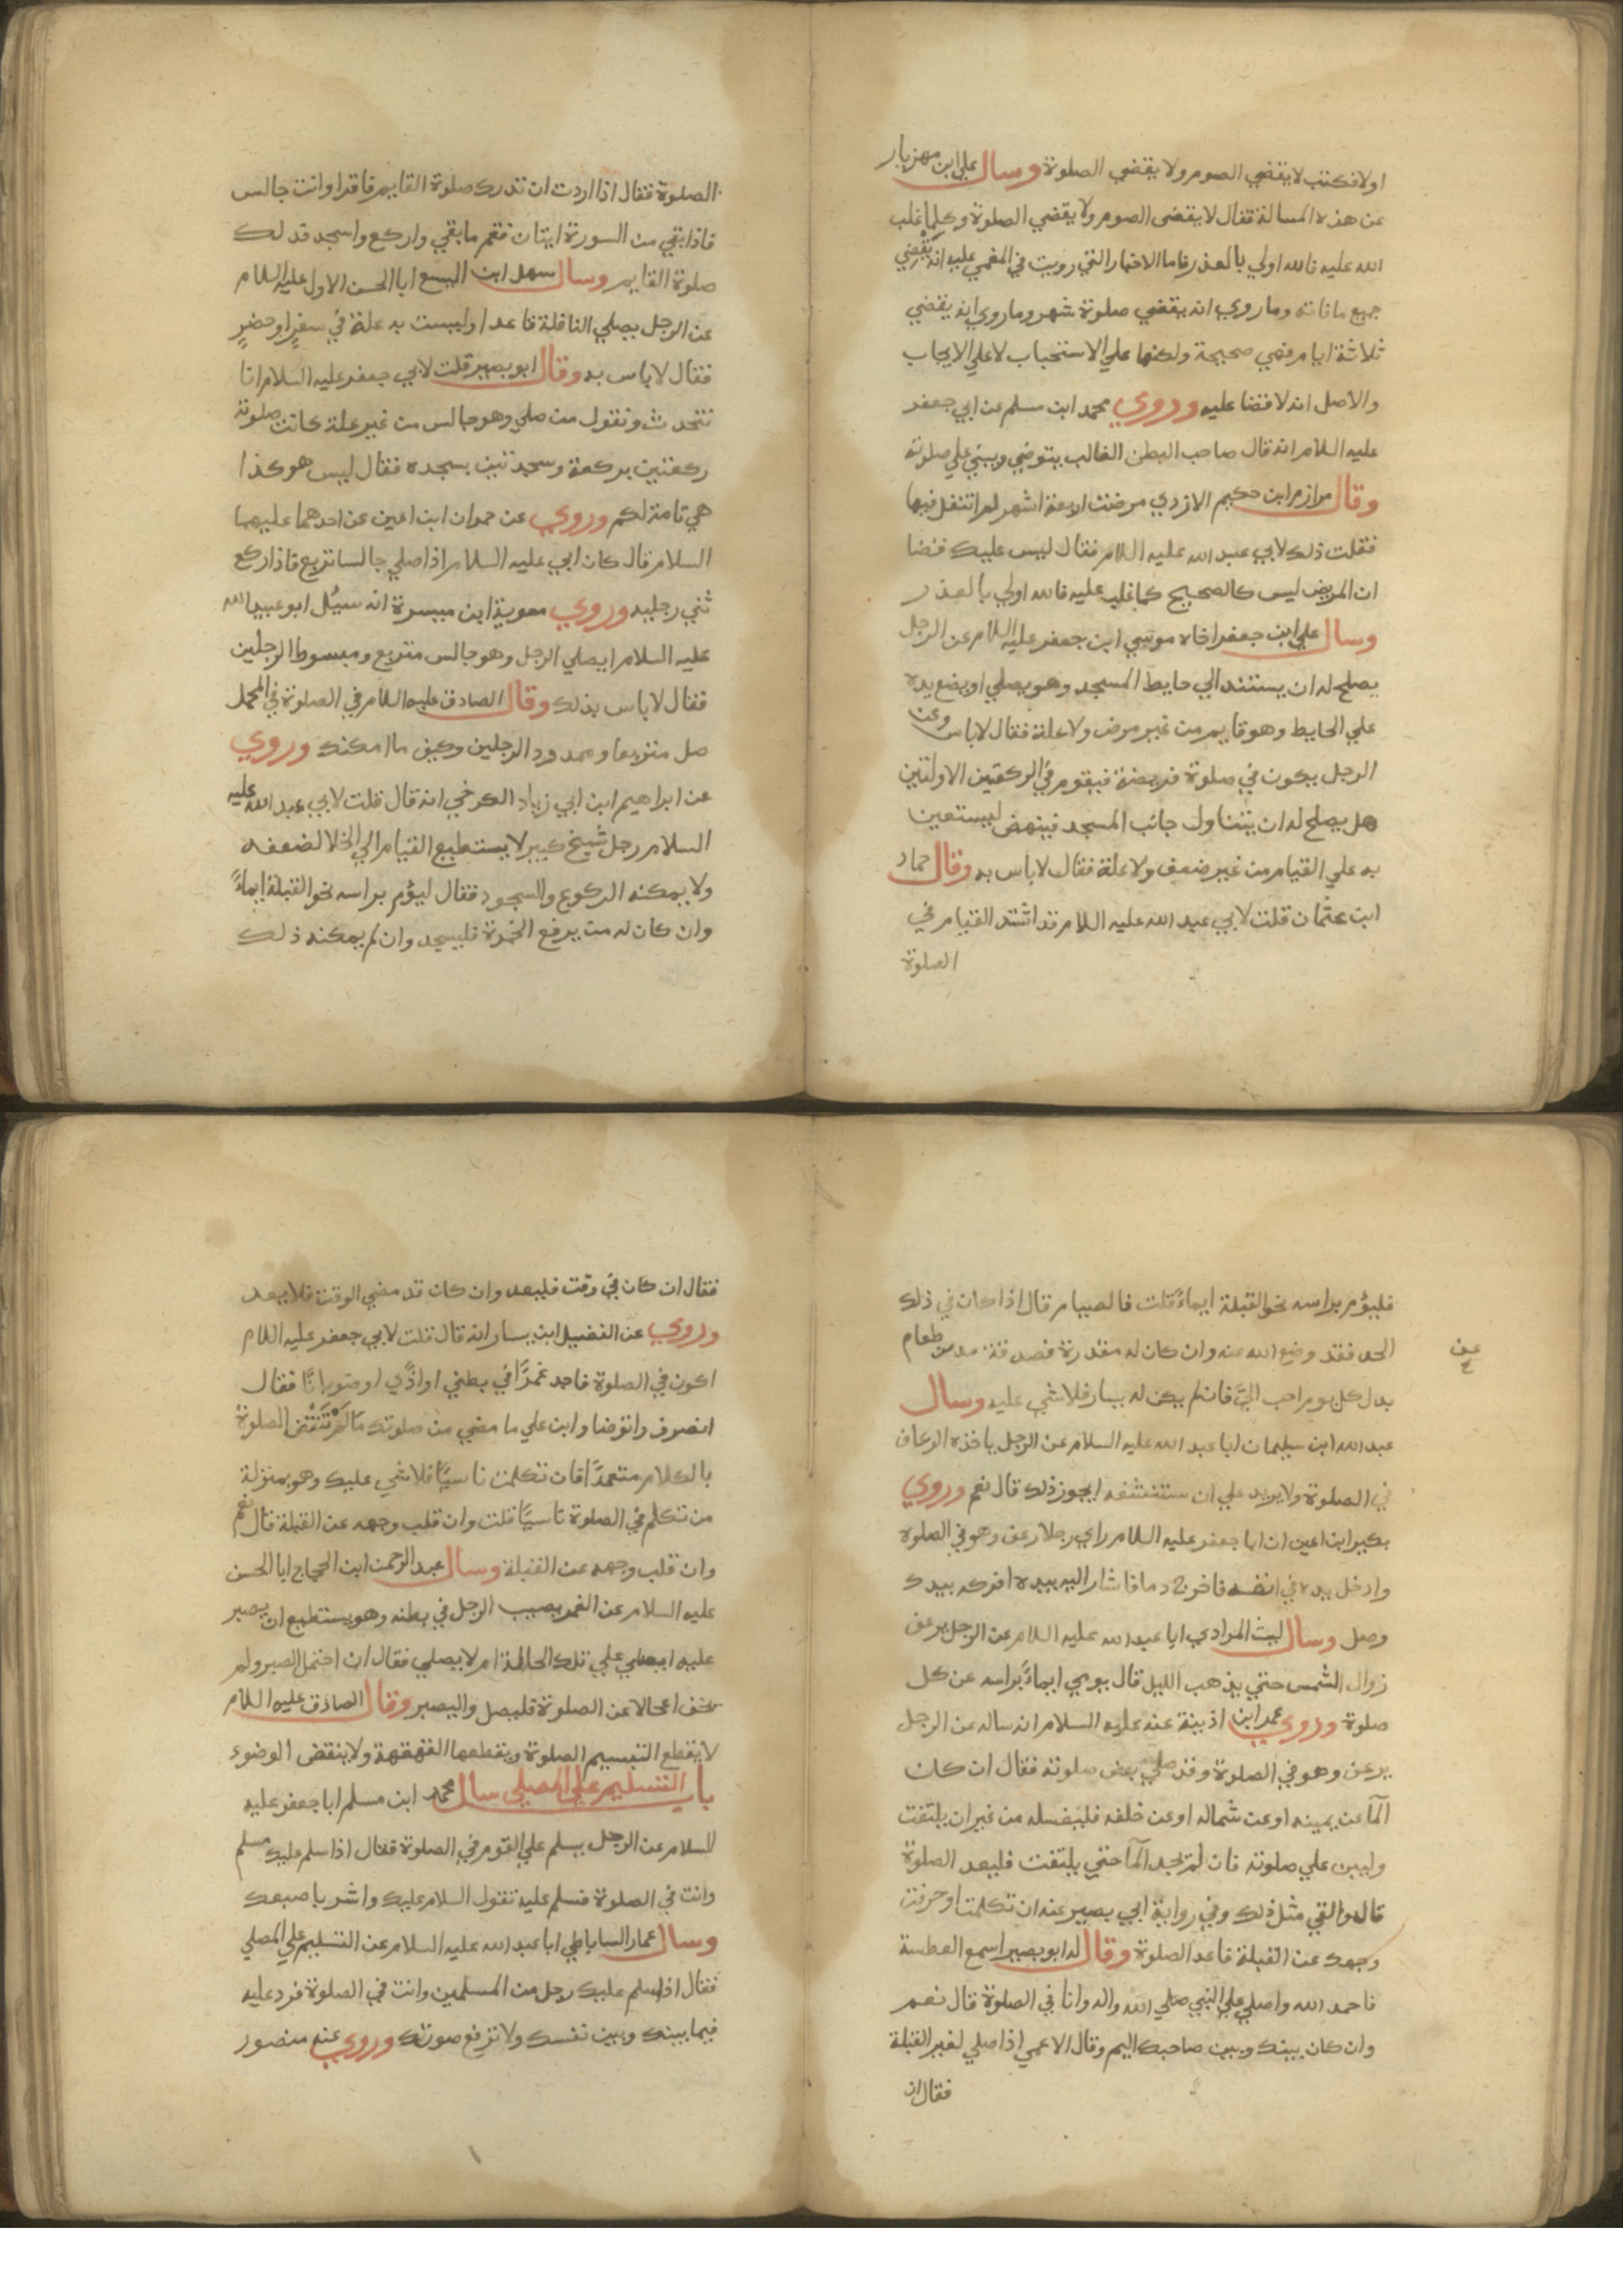 اولا فكتب لا يقضي الصوم ولا يقضي الصلوة وسال علي ابن مهزيار
عن هذه المسالة فقال لا يقضى الصوم ولا يقضي الصلوة وكلما غلب
الله عليه فالله اولي بالعذر فاما الاخبار التي رويت في المغمي عليه انه يقضي
جميع ما فاته وما روي انه يقضي صلوة شهر وما روي انه يقضي
ثلاثة ايام فهي صحيحة ولكنها علي الاستحباب لا علي الايجاب
والاصل انه لا قضا عليه وروي محمد ابن مسلم عن ابي جعفر
عليه السلام انه قال صاحب البطن الغالب يتوضي ويبني علي صلوته
وقال مرازم ابن حكيم الازدي مرضت اربعة اشهر لم اتنفل فيها
فقلت ذلك لابي عبد الله عليه اللام فقال ليس عليك قضا
ان المريض ليس كالصحيح كما غلب عليه فالله اولي بالعذر
وسال علي ابن جعفر اخاه موسي ابن جعفر عليه اللام عن الرجل
يصلح له ان يستند الي حايط المسجد وهو يصلي او يضع يده
علي الحايط وهو قايم من غير مرض ولا علة فقال لا باس وعن
الرجل يكون في صلوة فريضة فيقوم في الركعتين الاولتين
هل يصلح له ان يتناول جانب المسجد فينهض ليستعين
به علي القيام من غير ضعف ولا علة فقال لا باس به وقال حماد
ابن عثمان قلت لابي عبد الله عليه اللام قد اشتد القيام في
الصلوة
الصلوة فقال اذا اردت ان تدرك صلوة القايم فاقرا وانت جالس
فاذا بقي من السورة ايتان فقم ما بقي واركع واسجد فذلك
صلوة القايم وسال سهل ابن اليسع ابا الحسن الاول عليه اللام
عن الرجل يصلي النافلة قاعدا وليست به علة في سفرٍ او حضرٍ
فقال لا باس به وقال ابو بصير قلت لابي جعفر عليه السلام انا
نتحدث ونقول من صلي وهو جالس من غير علة كانت صلوته
ركعتين بركعة وسجدتين بسجده فقال ليس هو كذا
هي تامة لكم وروي عن حمران ابن اعين عن احدهما عليهما
السلام قال كان ابي عليه السلام اذا صلي جالسا تربع فاذا ركع
ثني رجليه وروي معوية ابن ميسرة انه سيُل ابو عبد الله
عليه السلام ايصلي الرجل وهو جالس متربع ومبسوط الرجلين
فقال لا باس بذلك وقال الصادق عليه اللام في الصلوة في المحمل
صل متربعا وممدود الرجلين وكيف ما امكنك وروي
عن ابراهيم ابن ابي زياد الكرخي انه قال قلت لابي عبد الله عليه
السلام رجل شيخ كبير لا يستطيع القيام الي الخلا لضعفه
ولا يمكنه الركوع والسجود فقال ليؤم براسه نحو القبلة ايماءً
وان كان له من يرفع الخمرة فليسجد وان لم يمكنه ذلك
فليؤم براسه نحو القبلة ايماءً قلت فالصيام قال اذا كان في ذلك
الحد فقد وضع الله عنه وان كان له مقدرة فصدقة مد من طعام
بدل كل يوم احب اليَّ فان لم يكن له يسار فلا شي عليه وسال
عبد الله ابن سليمان ابا عبد الله عليه السلام عن الرجل ياخذه الرعاف
في الصلوة ولا يريد علي ان ستنشفه ايجوز ذلك قال نعم وروي
بكير ابن اعين ان ابا جعفر عليه اللام راي رجلا رعف وهو في الصلوة
وادخل يده في انفسه فاخرج دما فاشار اليه بيده افركه بيدك
وصل وسال ليث المرادي ابا عبد الله عليه اللام عن الرجل يرعف
زوال الشمس حتي يذهب الليل قال يومي ايماءً براسه عن كل
صلوة وروي عمر ابن اذينة عنه عليه السلام انه ساله عن الرجل
يرعف وهو في الصلوة وقد صلي بعض صلوته فقال ان كان
المآ عن يمينه او عن شماله او عن خلفه فليغسله من غير ان يلتفت
وليبن علي صلوته فان لم يجد المآ حتي يلتفت فليعد الصلوة
قال والقي مثل ذلك وفي رواية ابي بصير عنه ان تكلمت او حرفت
وجهك عن القبلة فاعد الصلوة وقال له ابو بصير اسمع العطسة
فاحمد الله واصلي علي النبي صلي الله واله وانا في الصلوة قال نعم
وان كان بينك وبين صاحبك اليم وقال الاعمي اذا صلي لغير القبلة
فقال ان
فقال ان كان في وقت فليعد وان كان قد مضي الوقت فلا يعد
وروي عن الفضيل ابن يسار انه قال قلت لابي جعفر عليه اللام
اكون في الصلوة فاجد غمزًا في بطني او اذًي او ضربانًا فقال
انصرف واتوضا وابن علي ما مضي من صلوتك مالم تنتقض الصلوة
بالكلام متعمدًا فان تكلمت ناسيًا فلا شي عليك وهو بمنزلة
من تكلم في الصلوة ناسيًا قلت وان قلب وجهه عن القبلة قال نعم
وان قلب وجهه عن القبلة وسال عبد الرحمن ابن الحجاج ابا الحسن
عليه السلام عن الغمز يصيب الرجل في بطنه وهو يستطيع ان يصبر
عليه ايصلي علي تلك الحالة ام لا يصلي فقال ان احتمل الصبر ولم
يخف اعجالا عن الصلوة فليصل واليصبر وقال الصادق عليه اللام
لا يقطع التبسم الصلوة ويقطعها القهقهة ولا ينقض الوضوء
باب التسليم علي المصلي سال محمد ابن مسلم ابا جعفر عليه
السلام عن الرجل يسلم علي القوم في الصلوة فقال اذا سلم عليك مسلم
وانت في الصلوة فسلم عليه تقول السلام عليك واشر باصبعك
وسال عمار الساباطي ابا عبد الله عليه السلام عن التسليم علي المصلي
فقال اذا سلم عليك رجل من المسلمين وانت في الصلوة فرد عليه
فيما بينك وبين نفسك ولا ترفع صوتك وروي عنه منصور